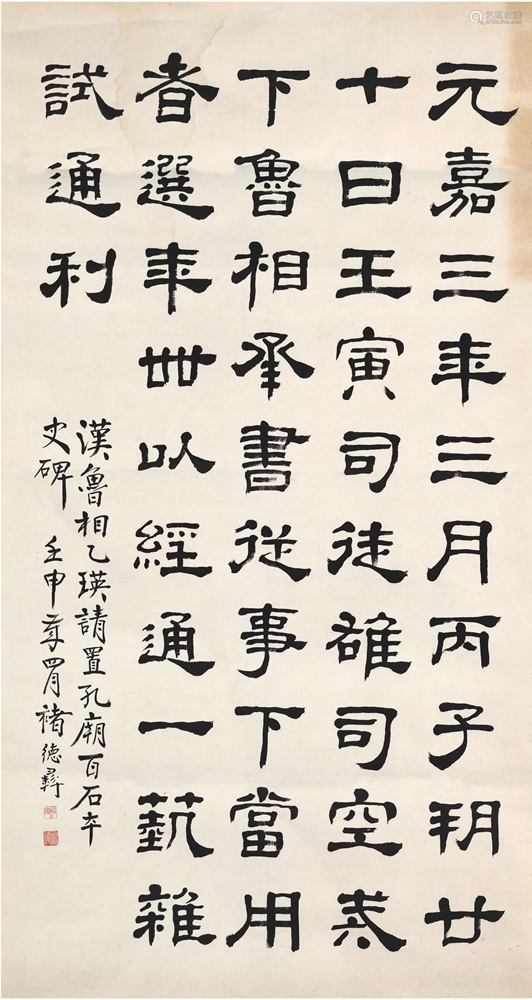 艺狐在线
元嘉三年三月丙子朔廿
七日壬寅司徒雄司空戒
下魯相承書從事下當用
者選年卌以經通一藝雜
試通利
漢魯相乙瑛請置孔廟百石卒
史碑 壬申四月褚德彝